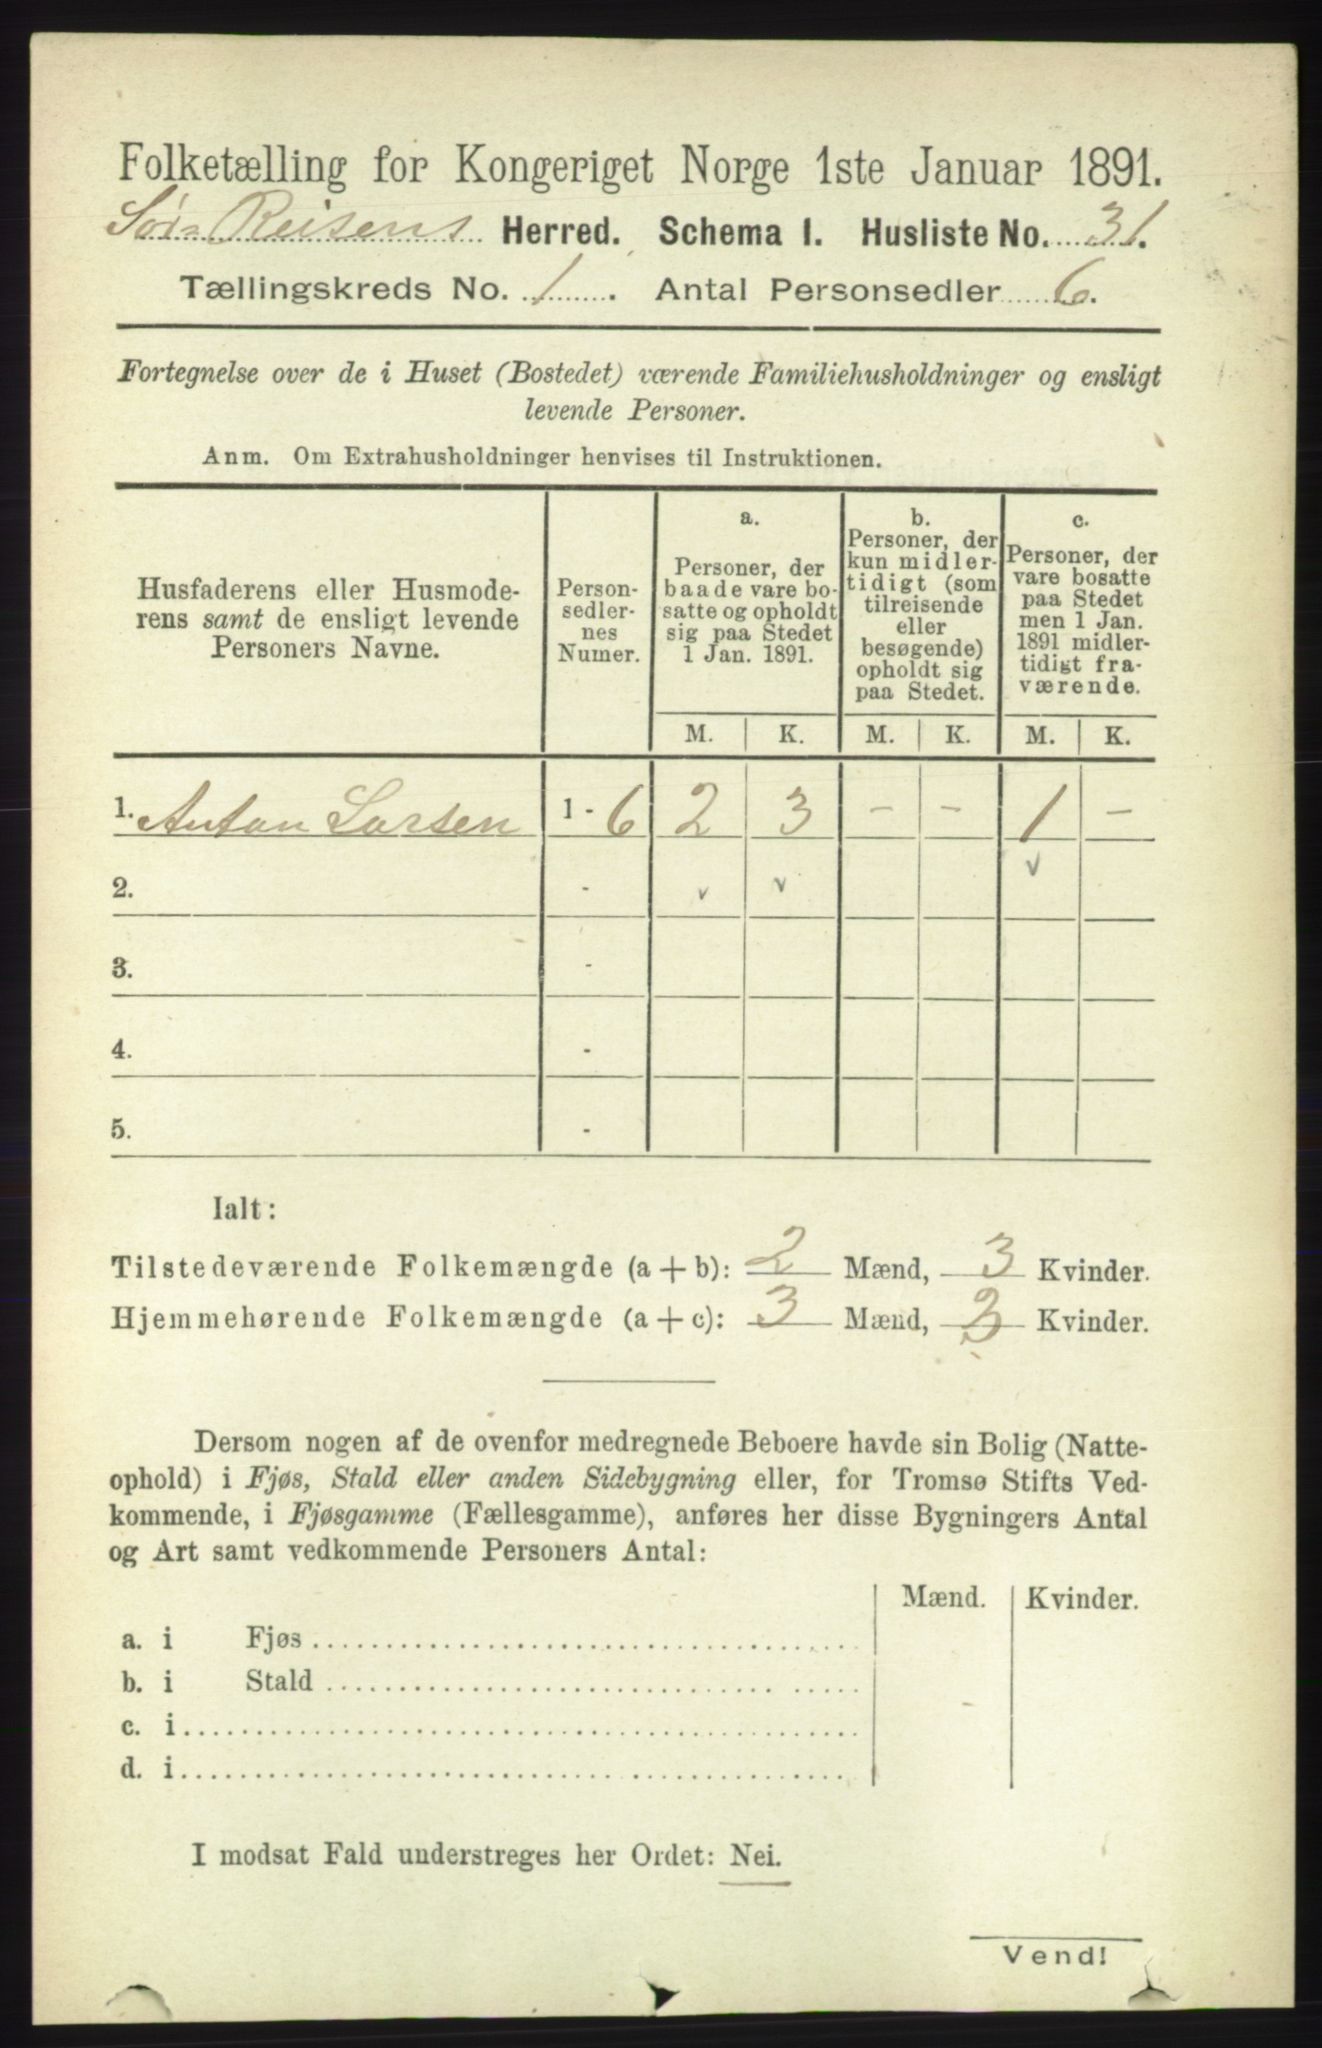 Folketælling for Kongeriget Norge 1ste Januar 1891.
Sør-Reisens Herred. Schema I. Husliste No. 31.
Tællingskreds No. 1. Antal Personsedler 6.
Fortegnelse over de i Huset (Bostedet) værende Familiehusholdninger og ensligt
levende Personer.
Anm. Om Extrahusholdninger henvises til Instruktionen.
Husfaderens eller Husmode-
rens samt de ensligt levende
Personers Navne.
Person-
sedler-
nes
Numer.
a.
Personer, der
baade vare bo-
satte og opholdt
sig paa Stedet
1 Jan. 1891.
b.
Personer, der
kun midler-
tidigt (som
tilreisende
eller
besøgende)
opholdt sig
paa Stedet.
c.
Personer, der
vare bosatte
paa Stedet
men 1 Jan.
1891 midler-
tidigt fra-
værende.
M. K. M. K. M. K.
1. Anton Larsen 1 - 6 2 3 - - 1 -
2. - v v v
3. -
4. -
5. -
Ialt:
Tilstedeværende Folkemængde (a + b): 2 Mænd, 3 Kvinder.
Hjemmehørende Folkemængde (a + c): 3 Mænd, 3 Kvinder.
Dersom nogen af de ovenfor medregnede Beboere havde sin Bolig (Natte-
ophold) i Fjøs, Stald eller anden Sidebygning eller, for Tromsø Stifts Ved-
kommende, i Fjøsgamme (Fællesgamme), anføres her disse Bygningers Antal
og Art samt vedkommende Personers Antal:
Mænd. Kvinder.
a. i Fjøs
b. i Stald
c. i
d. i
I modsat Fald understreges her Ordet: Nei.
Vend!